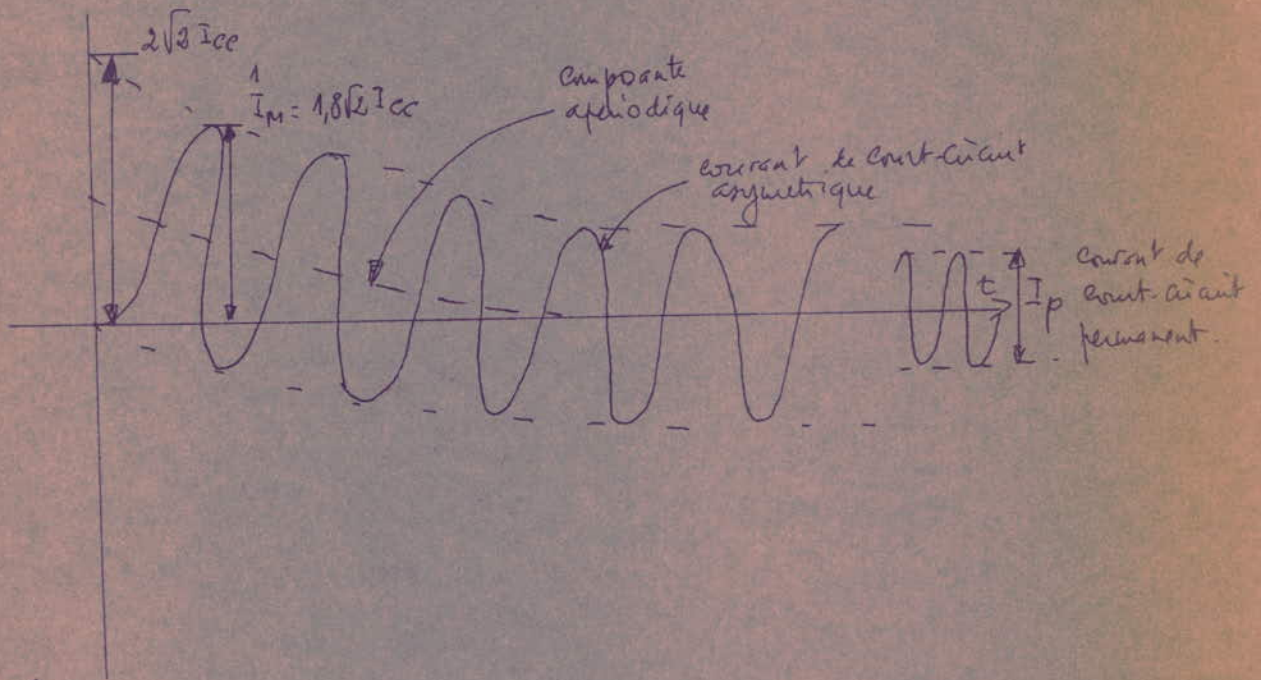 2√2 Icc
1
I_M = 1,8√2 Icc
composante
apériodique
courant de court-circuit
asymétrique
t
I_p
courant de
court-circuit
permanent.